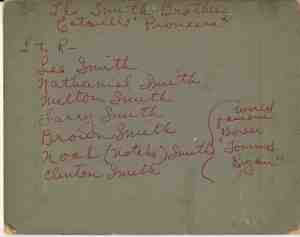 The Smith Brothers
"Pioneers"
L to R -
Lee Smith
Nathaniel Smith
Milton Smith
Larry Smith
Brown Smith
Noah (Notks) Smith
Clinton Smith
World
famous
Boxer
"Tommy
Ryan"